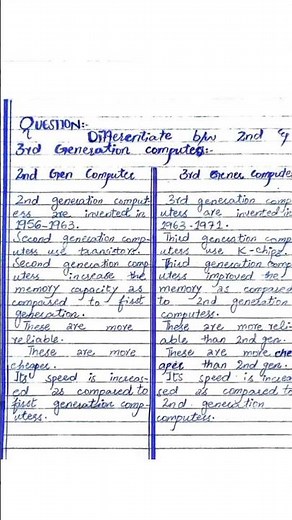 QUESTION:-
Differentiate b/w 2nd &
3rd Generation computers:-
2nd Gen Computer
2nd generation comput-
ers are invented in
1956-1963.
Second generation comp-
uters use transistors.
Second generation comp-
uters increase the
memory capacity as
compared to first
generation.
These are more
reliable.
These are more
cheaper.
Its speed is increas-
ed as compared to
first generation comp-
uters.
3rd Gener compute
3rd generation comp
uters are invented in
1963-1971.
Third generation comp
uters use K-chips.
Third generation comp
uters improved the
memory as compared
to 2nd generation
computers.
These are more reli-
able than 2nd gen.
These are more che
aper than 2nd gen.
Its speed is increa
sed as compared to
2nd generation
computers.